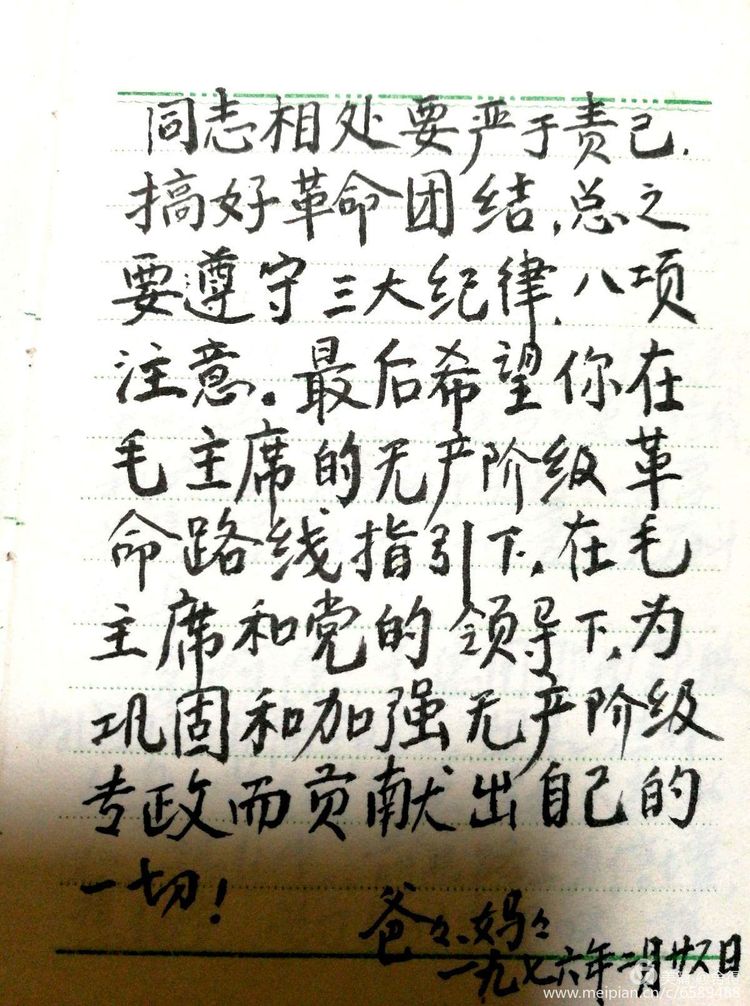 同志相处要严于责己,
搞好革命团结,总之
要遵守三大纪律,八项
注意。最后希望你在
毛主席的无产阶级革
命路线指引下,在毛
主席和党的领导下,为
巩固和加强无产阶级
专政而贡献出自己的
一切!
爸々、妈々
一九七六年二月廿五日
www.meipian.cn/c/6589488